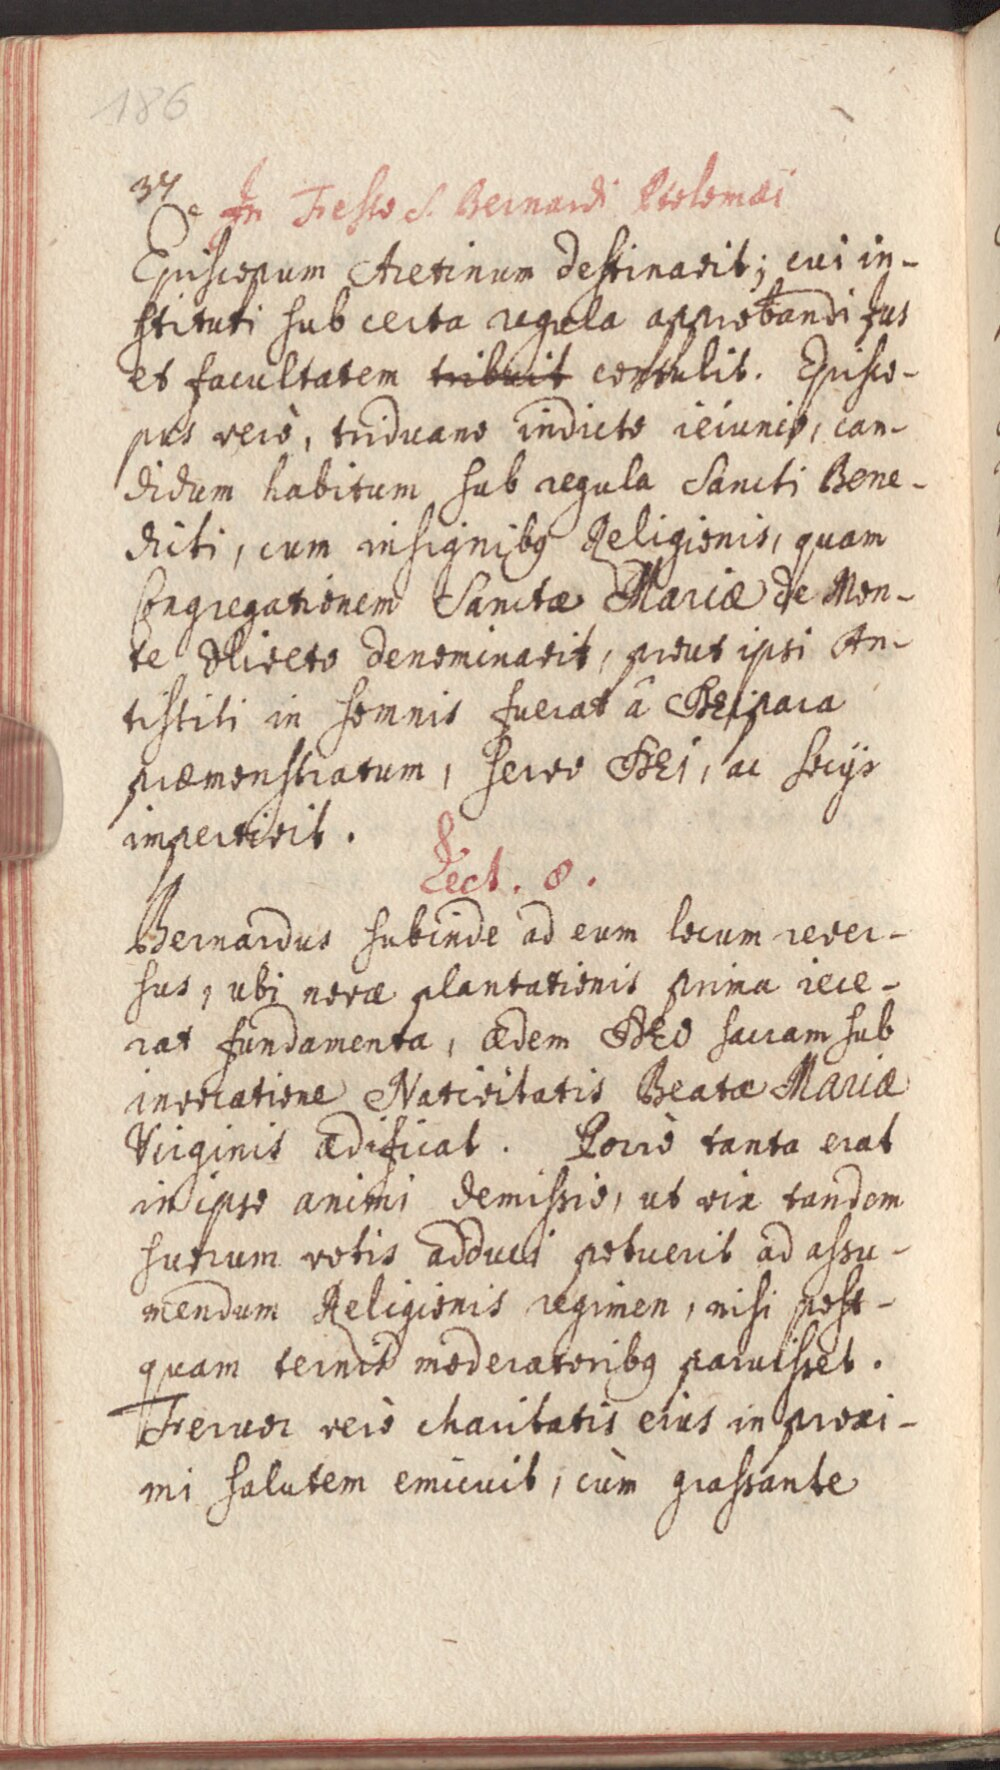 186
34
In Festo S. Bernardi Ptolomæi
Episcopum Aretinum destinavit; cui in-
stituti sub certa regula approbandi jus
et facultatem tribuit contulit. Episco-
pus verò, triduano indicto ieiunio, can-
didum habitum sub regula Sancti Bene-
dicti, cum insignibꝫ Religionis, quam
Congregationem Sanctæ Mariæ de Mon-
te Oliveto denominavit, prout ipsi An-
tistiti in somnis fuerat â DEipara
præmonstratum, servo DEI, ac socijs
impertivit.
Lect. 8.
Bernardus subinde ad eum locum rever-
sus, ubi novæ plantationis prima iece-
rat fundamenta, ædem DEO sacram sub
invocatione Nativitatis Beatæ Mariæ
Virginis ædificat. Porrò tanta erat
in ipso animi demissio, ut vix tandem
suorum votis adduci potuerit ad assu-
mendum Religionis regimen, nisi post-
quam ternis moderatoribꝫ paruisset.
Fervor verò charitatis eius in proxi-
mi salutem emicuit, cùm grassante